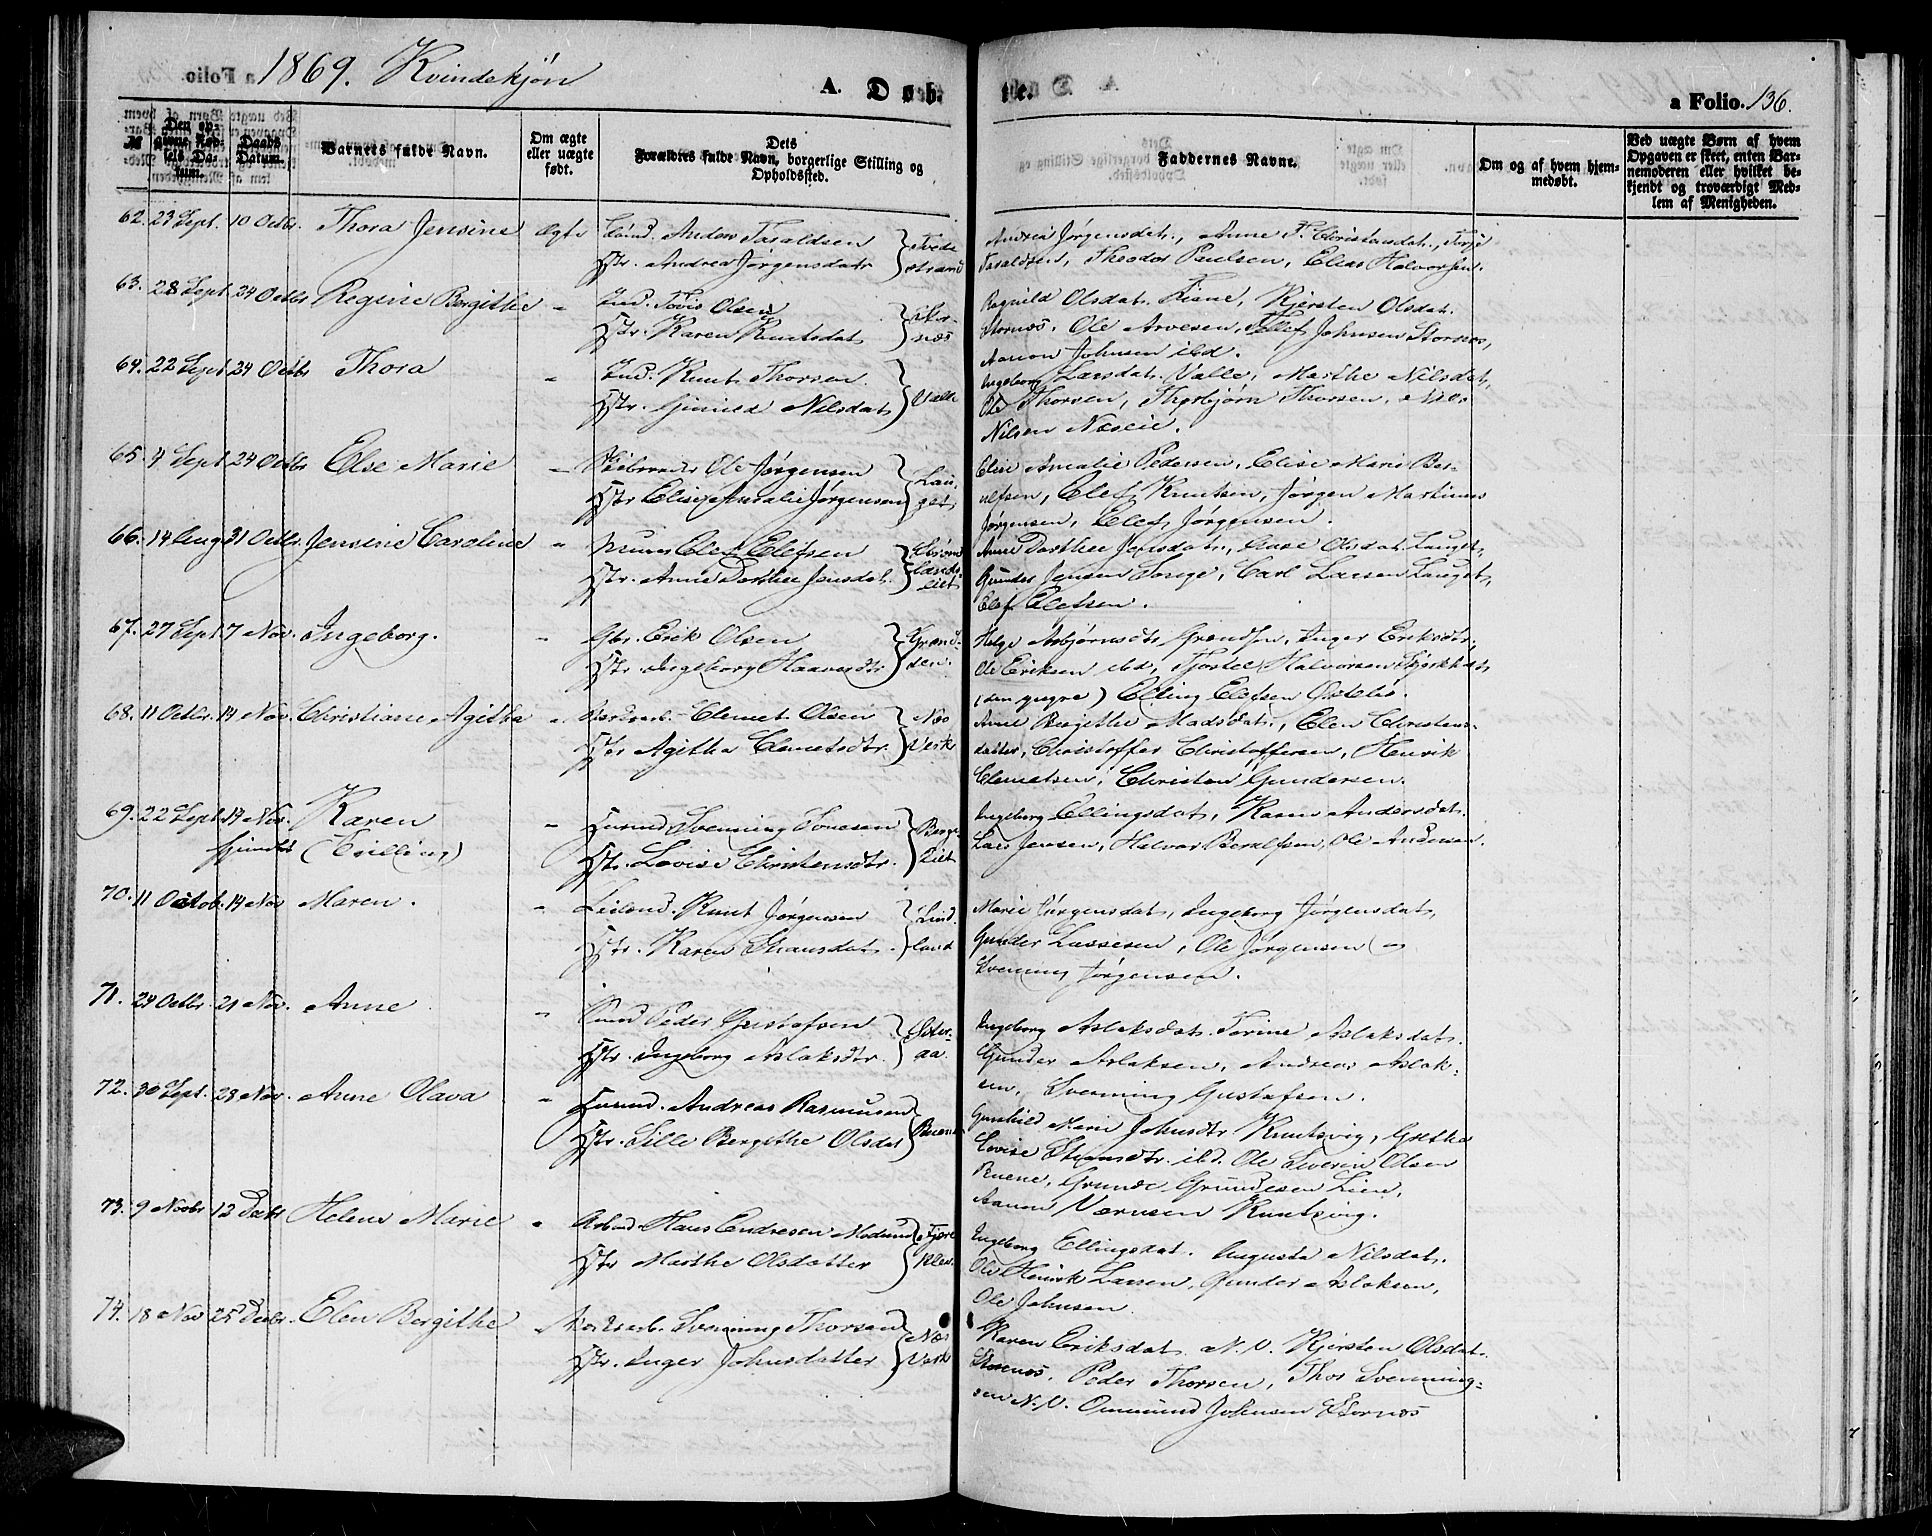 1869. Kvindekjøn
A. Døb-
te.
a Folio. 136.
№
Den opgivne Fødsels Datum.
Daabs Datum.
Barnets fulde Navn.
Om ægte eller uægte født.
Dets Forældres fulde Navn, borgerlige Stilling og Opholdssted.
Faddernes Navne.
Om og af hvem hjemmedøbt.
Ved uægte Børn af hvem Opgaven er skeet, enten Barnemoderen eller hvilket bekjendt og troværdigt Medlem af Menigheden.
62. 23 Sept. 10 Octbr. Thora Jensine Ægte Anders Taraldsen Tvede
Hstr. Andrea Jørgensdatr strand
Andrea Jørgensdat., Anne Christensdat., Terje
Taraldsen, Theodor Paulsen, Elias Halvorsen.
63. 28 Sept 24 Octbr Regine Bergithe " Ind. Olsen Stor-
Hstr. Karen Knutsdat næs
Ragnild Olsdat. Fiane, Kjersten Olsdat.
Stornæs, Ole Arvesen, Tellef Johnsen Stornæs,
Aanon Johnsen ibd.
64. 22 Sept 24 Octbr Thora " Ind. Knut Thorsen Valle
Hstr. Gunild Nilsdat
Ingeborg Larsdat. Valle, Marthe Nilsdat,
Ole Thorsen, Thorbjørn Thorsen,
Nilsen Næseie.
65. 4 Sept 24 Octbr Else Marie " Ole Jørgensen Lau-
Hstr Elise Amalie Jørgensen get
Elise Amalie Pedersen, Elise Marie Ber-
ulfsen, Elef Knutsen, Jørgen Martinus
Jørgensen, Elef Jørgensen.
66. 14 Aug 31 Octbr. Jensine Caroline " Murer Elef Elefsen
Hstr. Anne Dorthee Jensdat.
Anne Dorthee Jensdat., Aase Olsdat. Lauget,
Gunder Jensen Songe, Carl Larsen Lauget,
Elef Elefsen.
67. 27 Sept. 7 Nov. Ingeborg. " Gbr. Erik Olsen Grønd-
Hstr. Ingeborg
Helge Asbjørnsdtr. , Inger Eriksdtr.
Ole Eriksen ibd, Tjøstel Halvorsen
(den yngre) Elling Elefsen
68. 11 Octbr. 14 Nov. Christiane Agitha " Clemet Olsen Næs
Hstr Agitha Clemetsdtr. Verk
Anne Bergithe Madsdat., Elen Christens-
datter, Christoffer Christoffersen, Henrik
Clemetsen, Christen Gundersen.
69. 22 Sept. 14 Nov. Karen " Husmd Svenning Berge-
(Tvilling) Hstr. Lovise Christensdtr. liet
Ingeborg Ellingsdat, Karen Andersdat.
Lars Jensen, Halvor Berulfsen, Ole Andersen.
70. 11 Octob. 14 Nov Maren. " Leilend. Knut Jørgensen Lind-
Hstr. Karen land
Marie Jørgensdat, Ingeborg Jørgensdat,
Gunder Lassesen, Ole Jørgensen
Svenning Jørgensen.
71. 24 Octbr. 21 Nov. Anne " Peder Gustafsen Øster-
Hstr. Ingeborg Aslaksdtr. aa.
Ingeborg Aslaksdat. Torine Aslaksdat.
Gunder Aslaksen, Andreas Aslak-
sen, Svenning Gustafsen.
72. 30 Sept. 28 Nov. Anne Olava " Husmd. Andreas Rasmusen Buene
Hstr. Sille Bergithe Olsdat
Gunhild Marie Johnsdtr Knutsvig, Grethe
Lovise ibd. Ole Severin Olsen
Buene, Grunde Grundesen Lien,
Aanon Knutsvig.
73. 9 Novbr 12 Decbr Helene Marie " Hans Endresen Moelund Fjære
Hstr Marthe Olsdatter
Ingeborg Ellingsdat. Augusta Nilsdat.
Ole Henrik Larsen, Gunder Aslaksen,
Ole Johnsen.
74. 18 Nov 25 Decbr. Elen Bergithe " Svenning Thorsen Næs
Hstr. Inger Johnsdatter Verk
Karen Eriksdat. N.V. Kjersten Olsdat.
Stornæs, Peder Thorsen, Thor Svenning-
sen N.V. Ommund Johnsen Stornæs